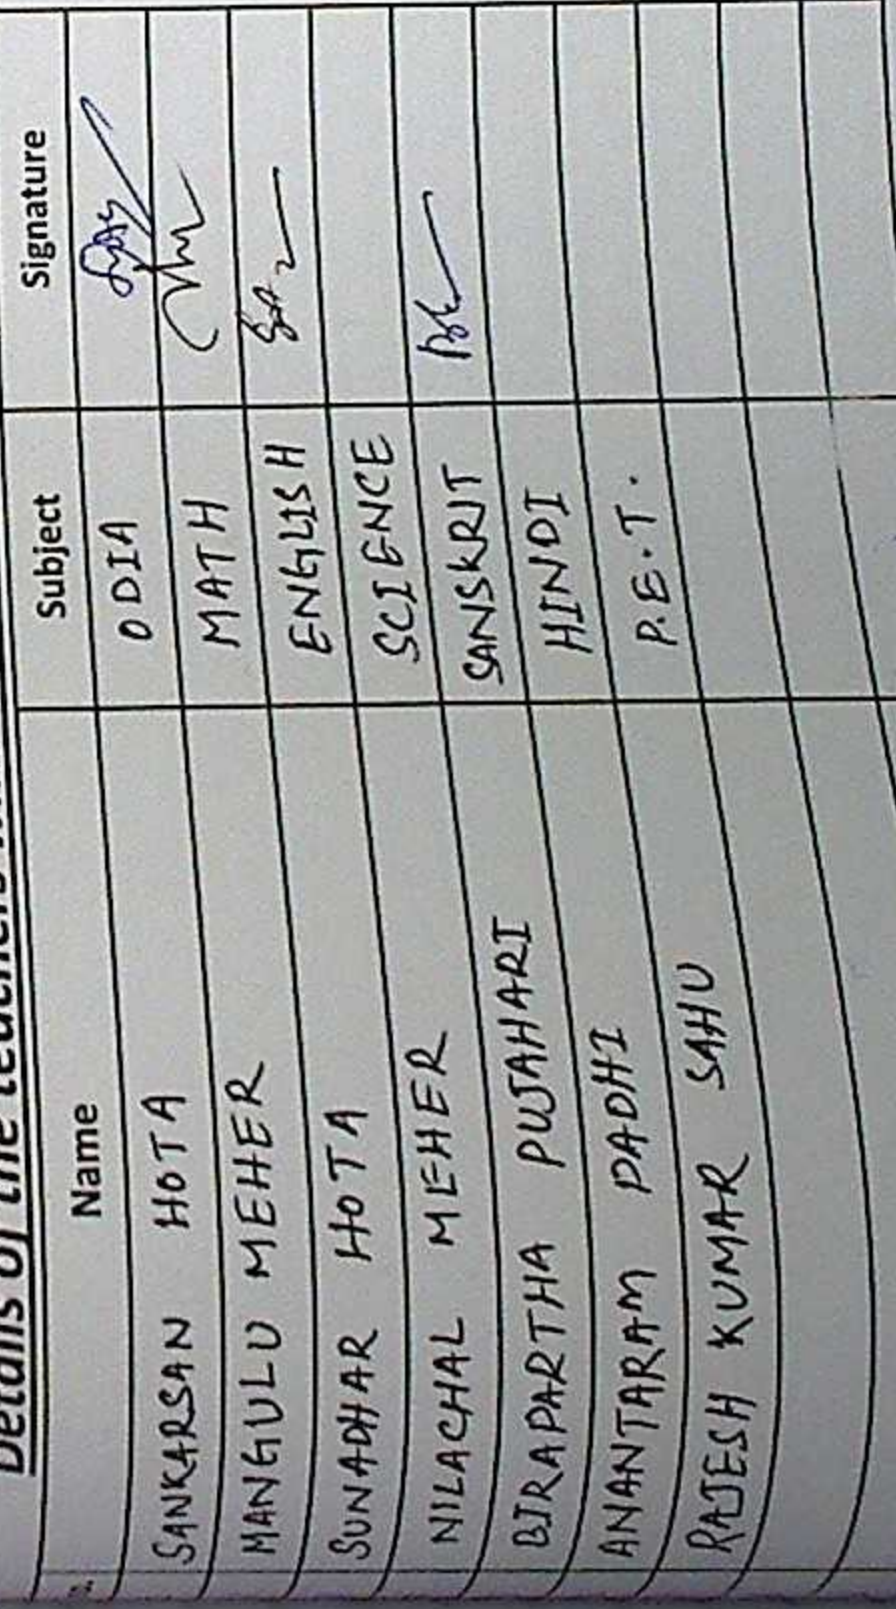 Details of the teachers
Name Subject Signature
SANKARSAN HOTA ODIA
MANGULU MEHER MATH
SUNADHAR HOTA ENGLISH
NILACHAL MEHER SCIENCE
BIRAPARTHA PUJAHARI SANSKRIT
ANANTARAM PADHI HINDI
RAJESH KUMAR SAHU P.E.T.